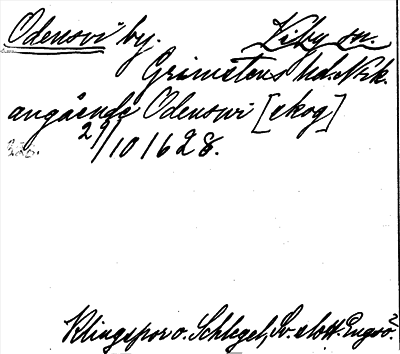 Odensvi by. Viby sn.
Grimstens hd. Nrk.
angående Odensvi [skog]
29/10 1628.
Klingspor o. Schlegel, Sv. slott. Engsö.